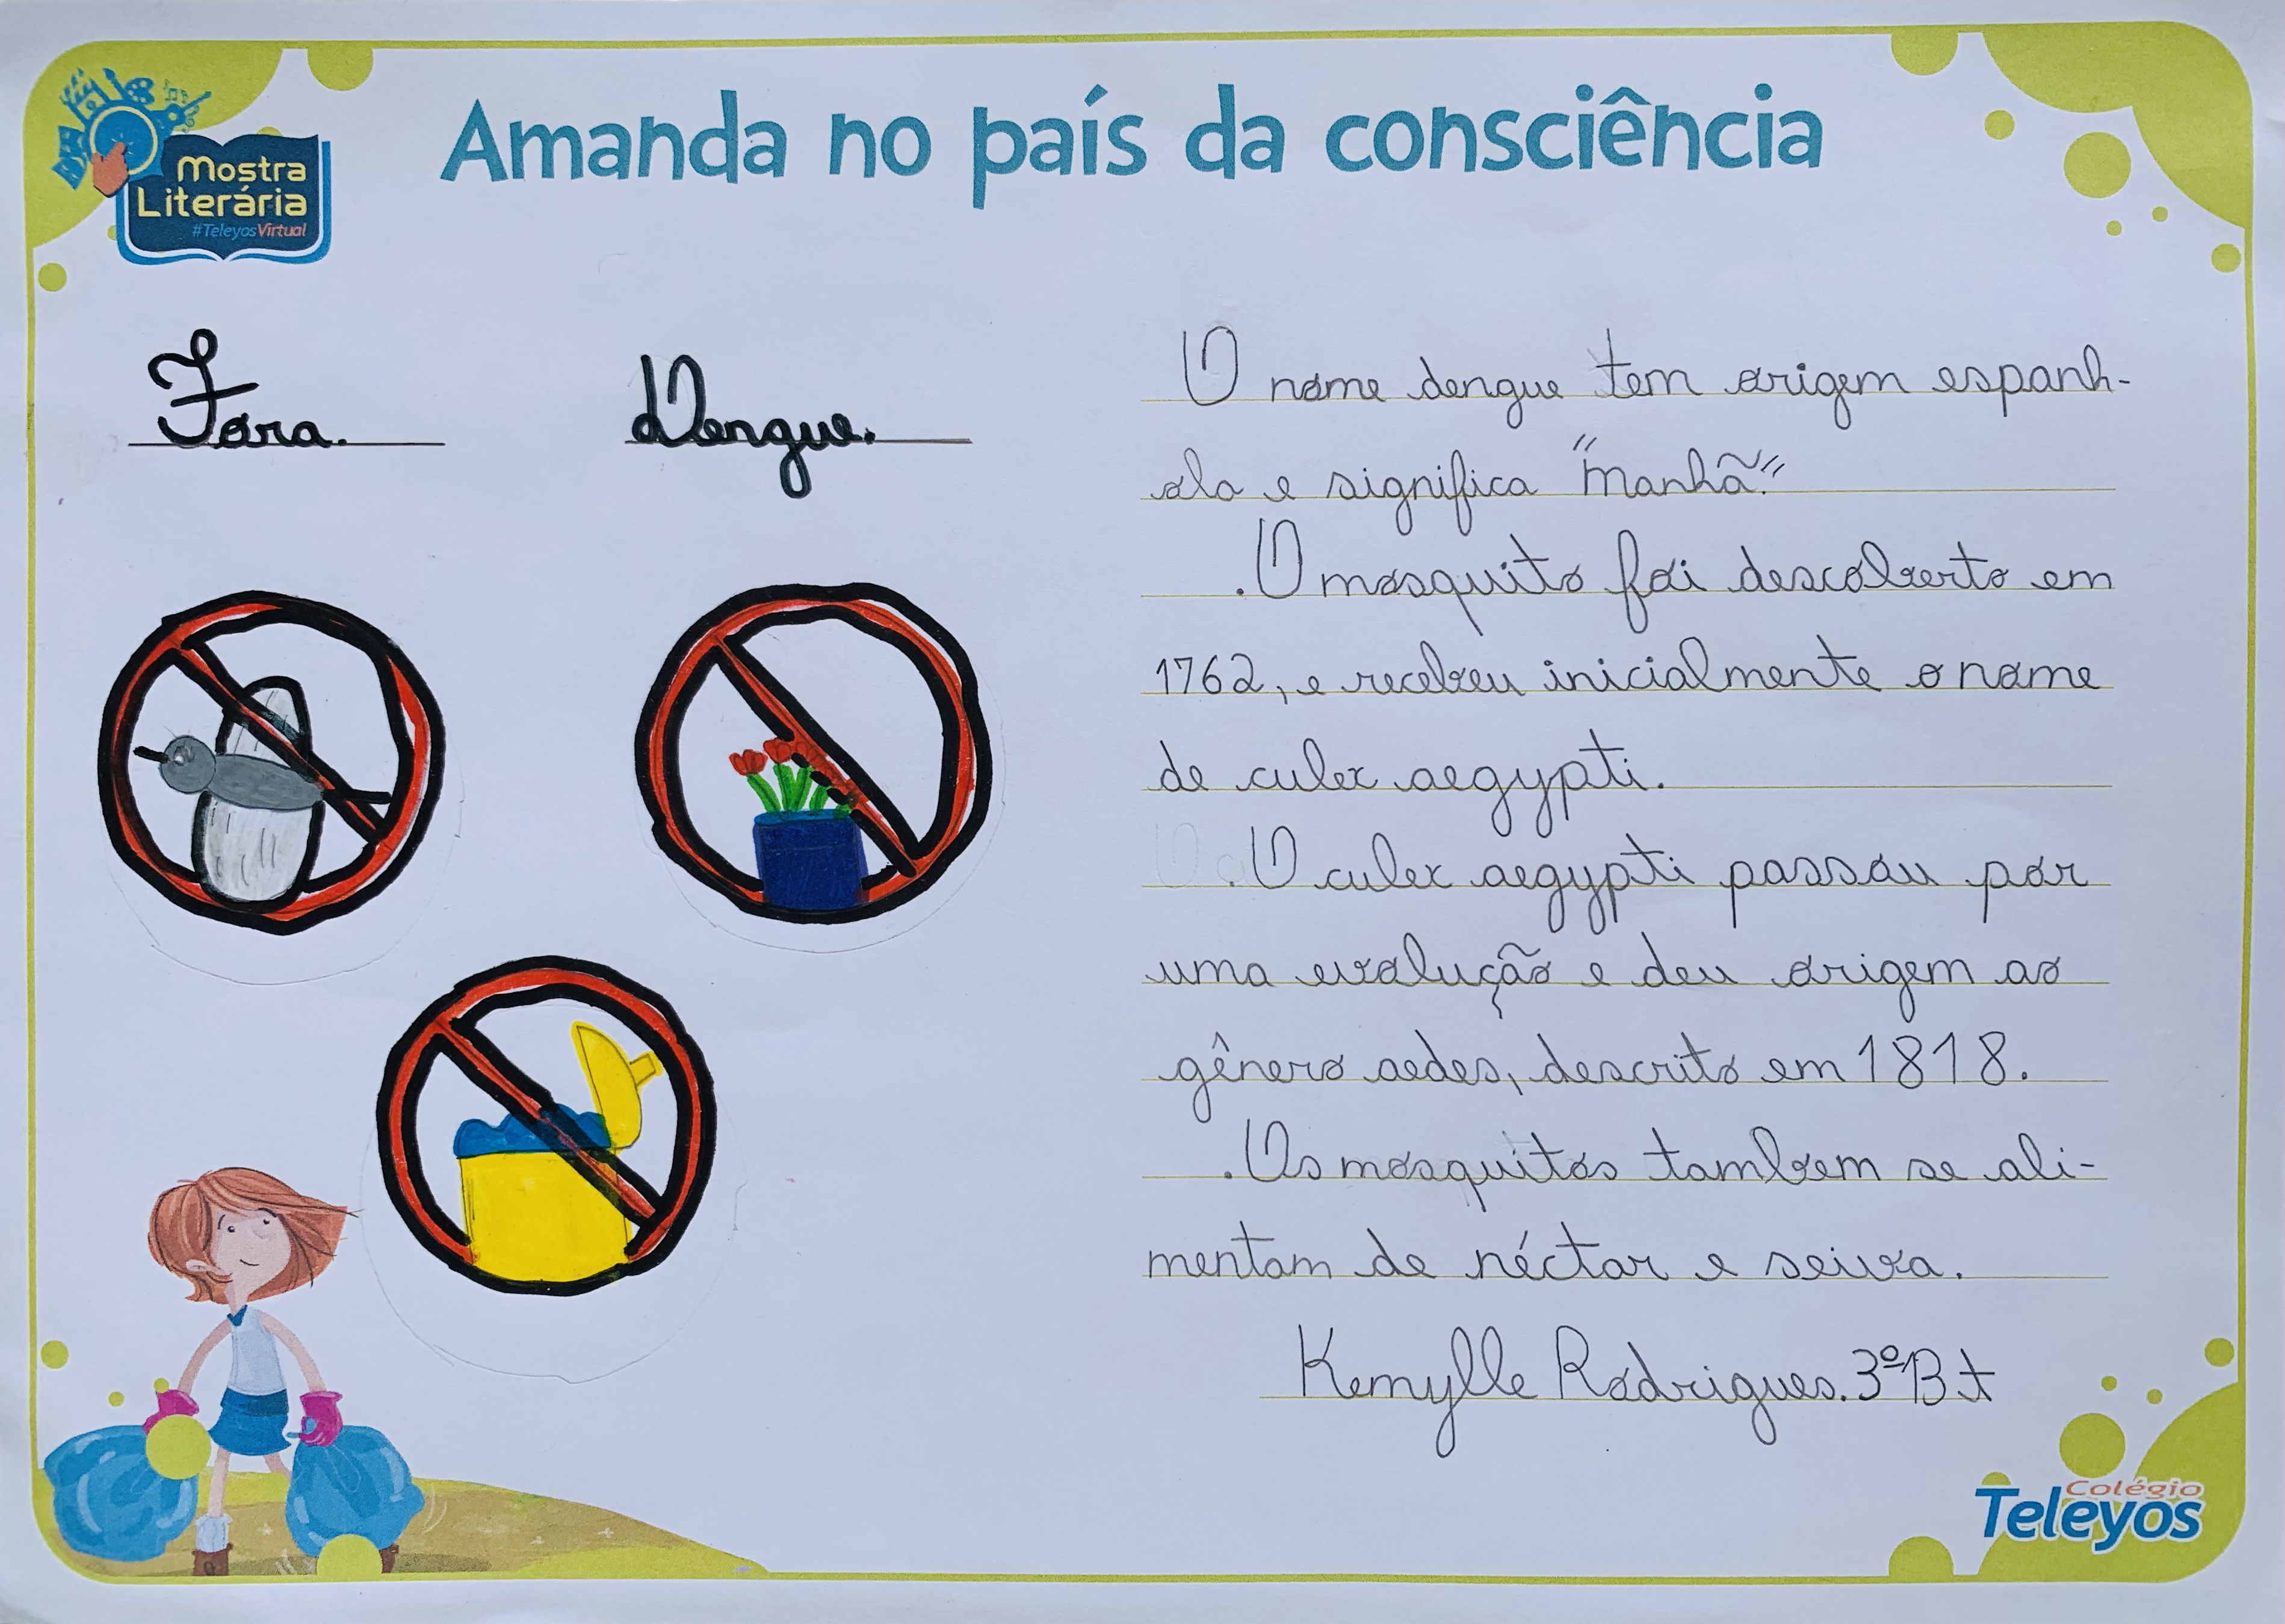 Amanda no país da consciência
Mostra
Literária
#TeleyosVirtual
Fora. Dengue.
O nome dengue tem origem espanh-
ola e significa "Manhã."
.O mosquito foi descoberto em
1762, e recebeu inicialmente o nome
de culex aegypti.
.O culex aegypti passou por
uma evolução e deu origem ao
gênero aedes, descrito em 1818.
.Os mosquitos tambem se ali-
mentam de néctar e seiva.
Kemylle Rodrigues. 3ºB t
Colégio
Teleyos